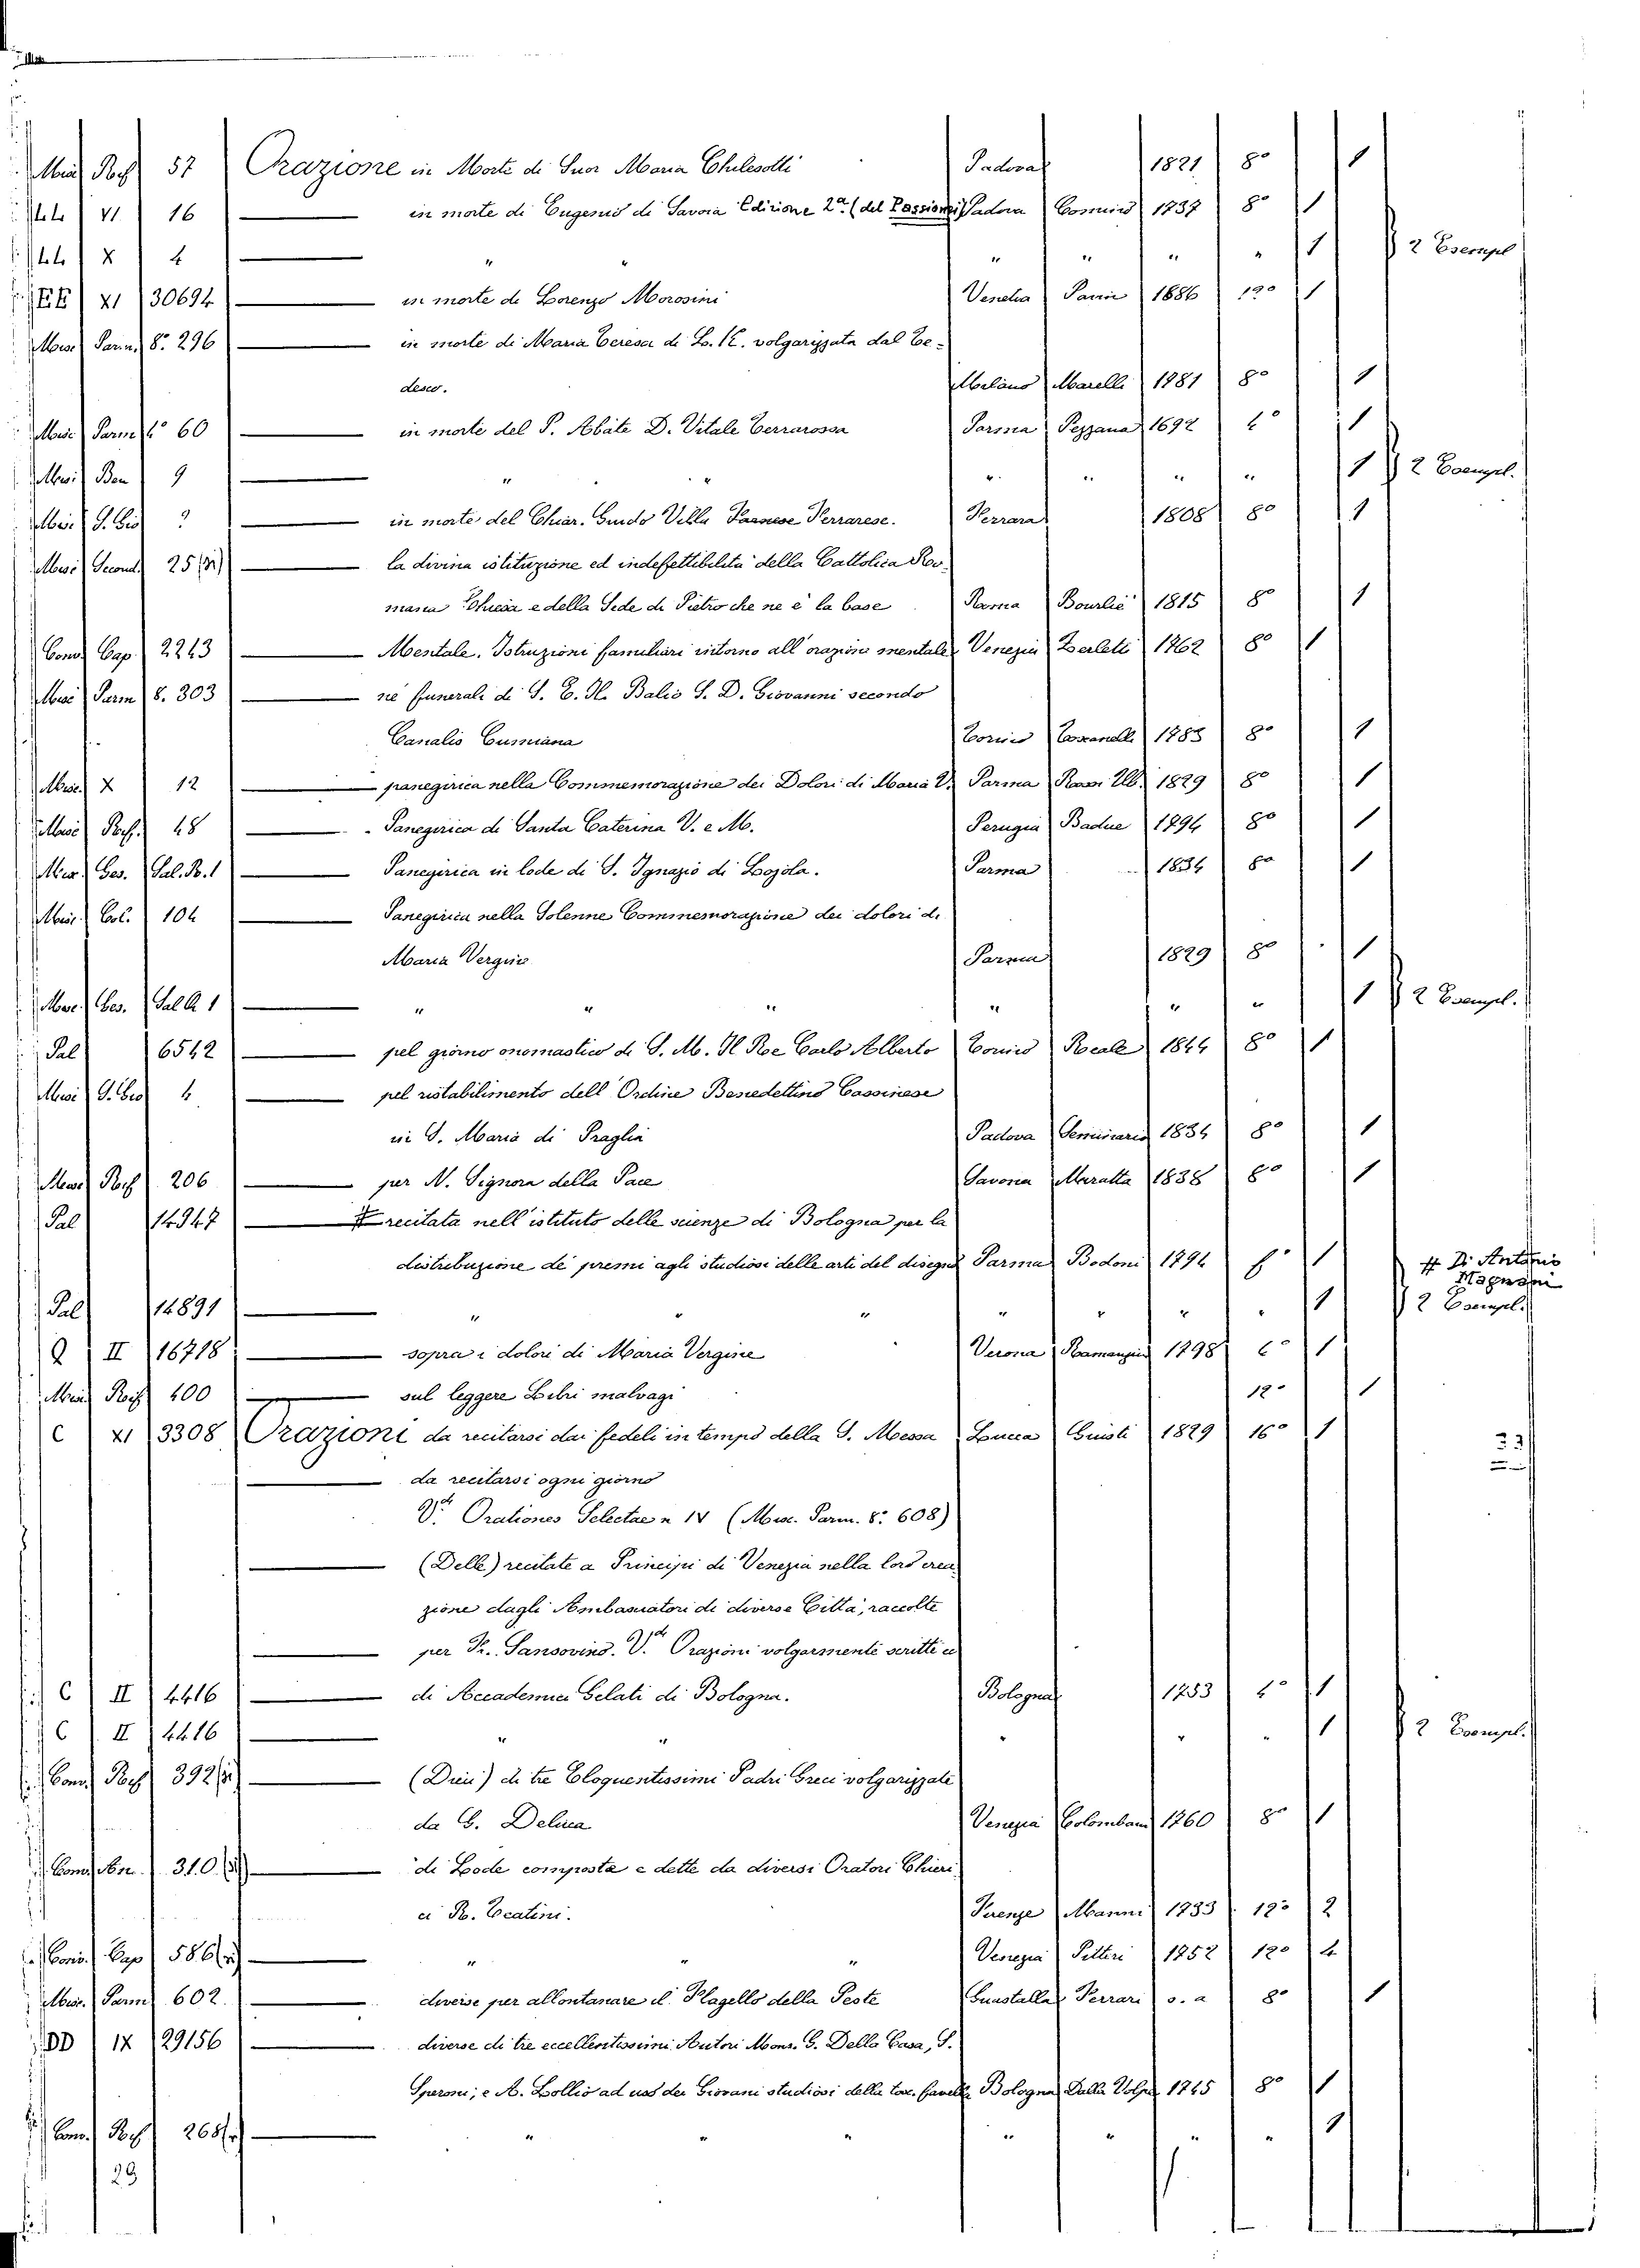 Misc Ros 57 Orazione in Morte di Suor Maria Chilesotti Padova 1821 8° 1
VI 16 in morte di Eugenio di Savoia Edizione 2ª (del Passionei) Padova Comino 1737 8° 1
X 4 " " " " " " 1 2 Esempl
EE XI 30694 in morte di Lorenzo Morosini Venetia 1686 12° 1
Misc Parm. 8° 296 in morte di Maria Teresa di L. K. volgarizzata dal Te-
desco. Milano Marelli 1781 8° 1
Misc Parm 4° 60 in morte del P. Abate D. Vitale Terrarossa Parma Pezzana 1692 4° 1
Misc Ben 9 " " " " " " 1 2 Esempl.
Misc S. Gio ? in morte del Chiar. Guido Villa Ferrarese. Ferrara 1808 8° 1
Misc Second. 25 la divina istituzione ed indefettibilità della Cattolica Ro-
mana Chiesa e della Sede di Pietro che ne è la base Roma Bourlié 1815 8° 1
Conv. Cap. 2243 Mentale. Istruzioni famuliari intorno all'orazione mentale Venezia Zerletti 1762 8° 1
Misc Parm 8. 303 ne funerali di S. E. Il Balio S. D. Giovanni secondo
Canalis Cumiana Torino 8° 1
Misc. X 12 panegirica nella Commemorazione dei Dolori di Maria V. Parma 1829 8° 1
Misc Ros. 48 Panegirica di Santa Caterina V. e M. Perugia Badue 1794 8° 1
Misc. Ges. Sal. B. 1 Panegirica in lode di S. Ignazio di Lojola. Parma 1834 8° 1
Misc. Col. 104 Panegirica nella Solenne Commemorazione dei dolori di
Maria Vergine Parma 1829 8° 1
Misc. Ges. Sal A 1 " " " " " " 1 2 Esempl.
Pal 6542 pel giorno onomastico di S. M. Il Re Carlo Alberto Torino Reale 1844 8° 1
Misc S. Gio 4 pel ristabilimento dell'Ordine Benedettino Cassinese
in S. Maria di Praglia Padova Seminario 1834 8° 1
Misc Ros 206 per N. Signora della Pace Savona Maratta 1838 8° 1
Pal 14947 # recitata nell'istituto delle scienze di Bologna per la
distribuzione dé premi agli studiosi delle arti del disegno Parma Bodoni 1794 f° 1 # Di Antonio
Magnani
Pal 14891 " " " " " " 1 2 Esempl.
Q II 16718 sopra i dolori di Maria Vergine Verona Ramanzini 1798 1
Misc Ros 400 sul leggere Libri malvagi 12° 1
C XI 3308 Orazioni da recitarsi dai fedeli in tempo della S. Messa Lucca Giusti 1829 16° 1 32
da recitarsi ogni giorno
Vᵈ Orationes Selectae n IV (Misc. Parm. 8° 608)
(Delle) recitate a Principi di Venezia nella loro crea-
zione dagli Ambasciatori di diverse Città, raccolte
per Fr. Sansovino. Vᵈ Orazioni volgarmente scritte ec
C II 4416 di Accademici Gelati di Bologna. Bologna 1753 4° 1
C II 4416 " " " " " 1 2 Esempl.
Conv Ros 392 (Dieci) di tre Eloquentissimi Padri Greci volgarizzate
da G. Deluca Venezia Colombani 1760 8° 1
Conv. 310 di Lode composta e dette da diversi Oratori Chieri-
ci R. Teatini. Firenze Manni 1733 12° 2
Conv. Cap 586 " " " Venezia Pitteri 1752 12° 4
Misc. Parm 602 diverse per allontanare il Flagello della Peste Guastalla Ferrari s. a 8° 1
DD IX 29156 diverse di tre eccellentissimi Autori Mons. G. Della Casa, S.
Speroni; e A. Lollio ad uso dei Giovani studiosi della tos. favella Bologna Dalla Volpe 1745 8° 1
Conv. Ros 268 " " " " " " " 1
29